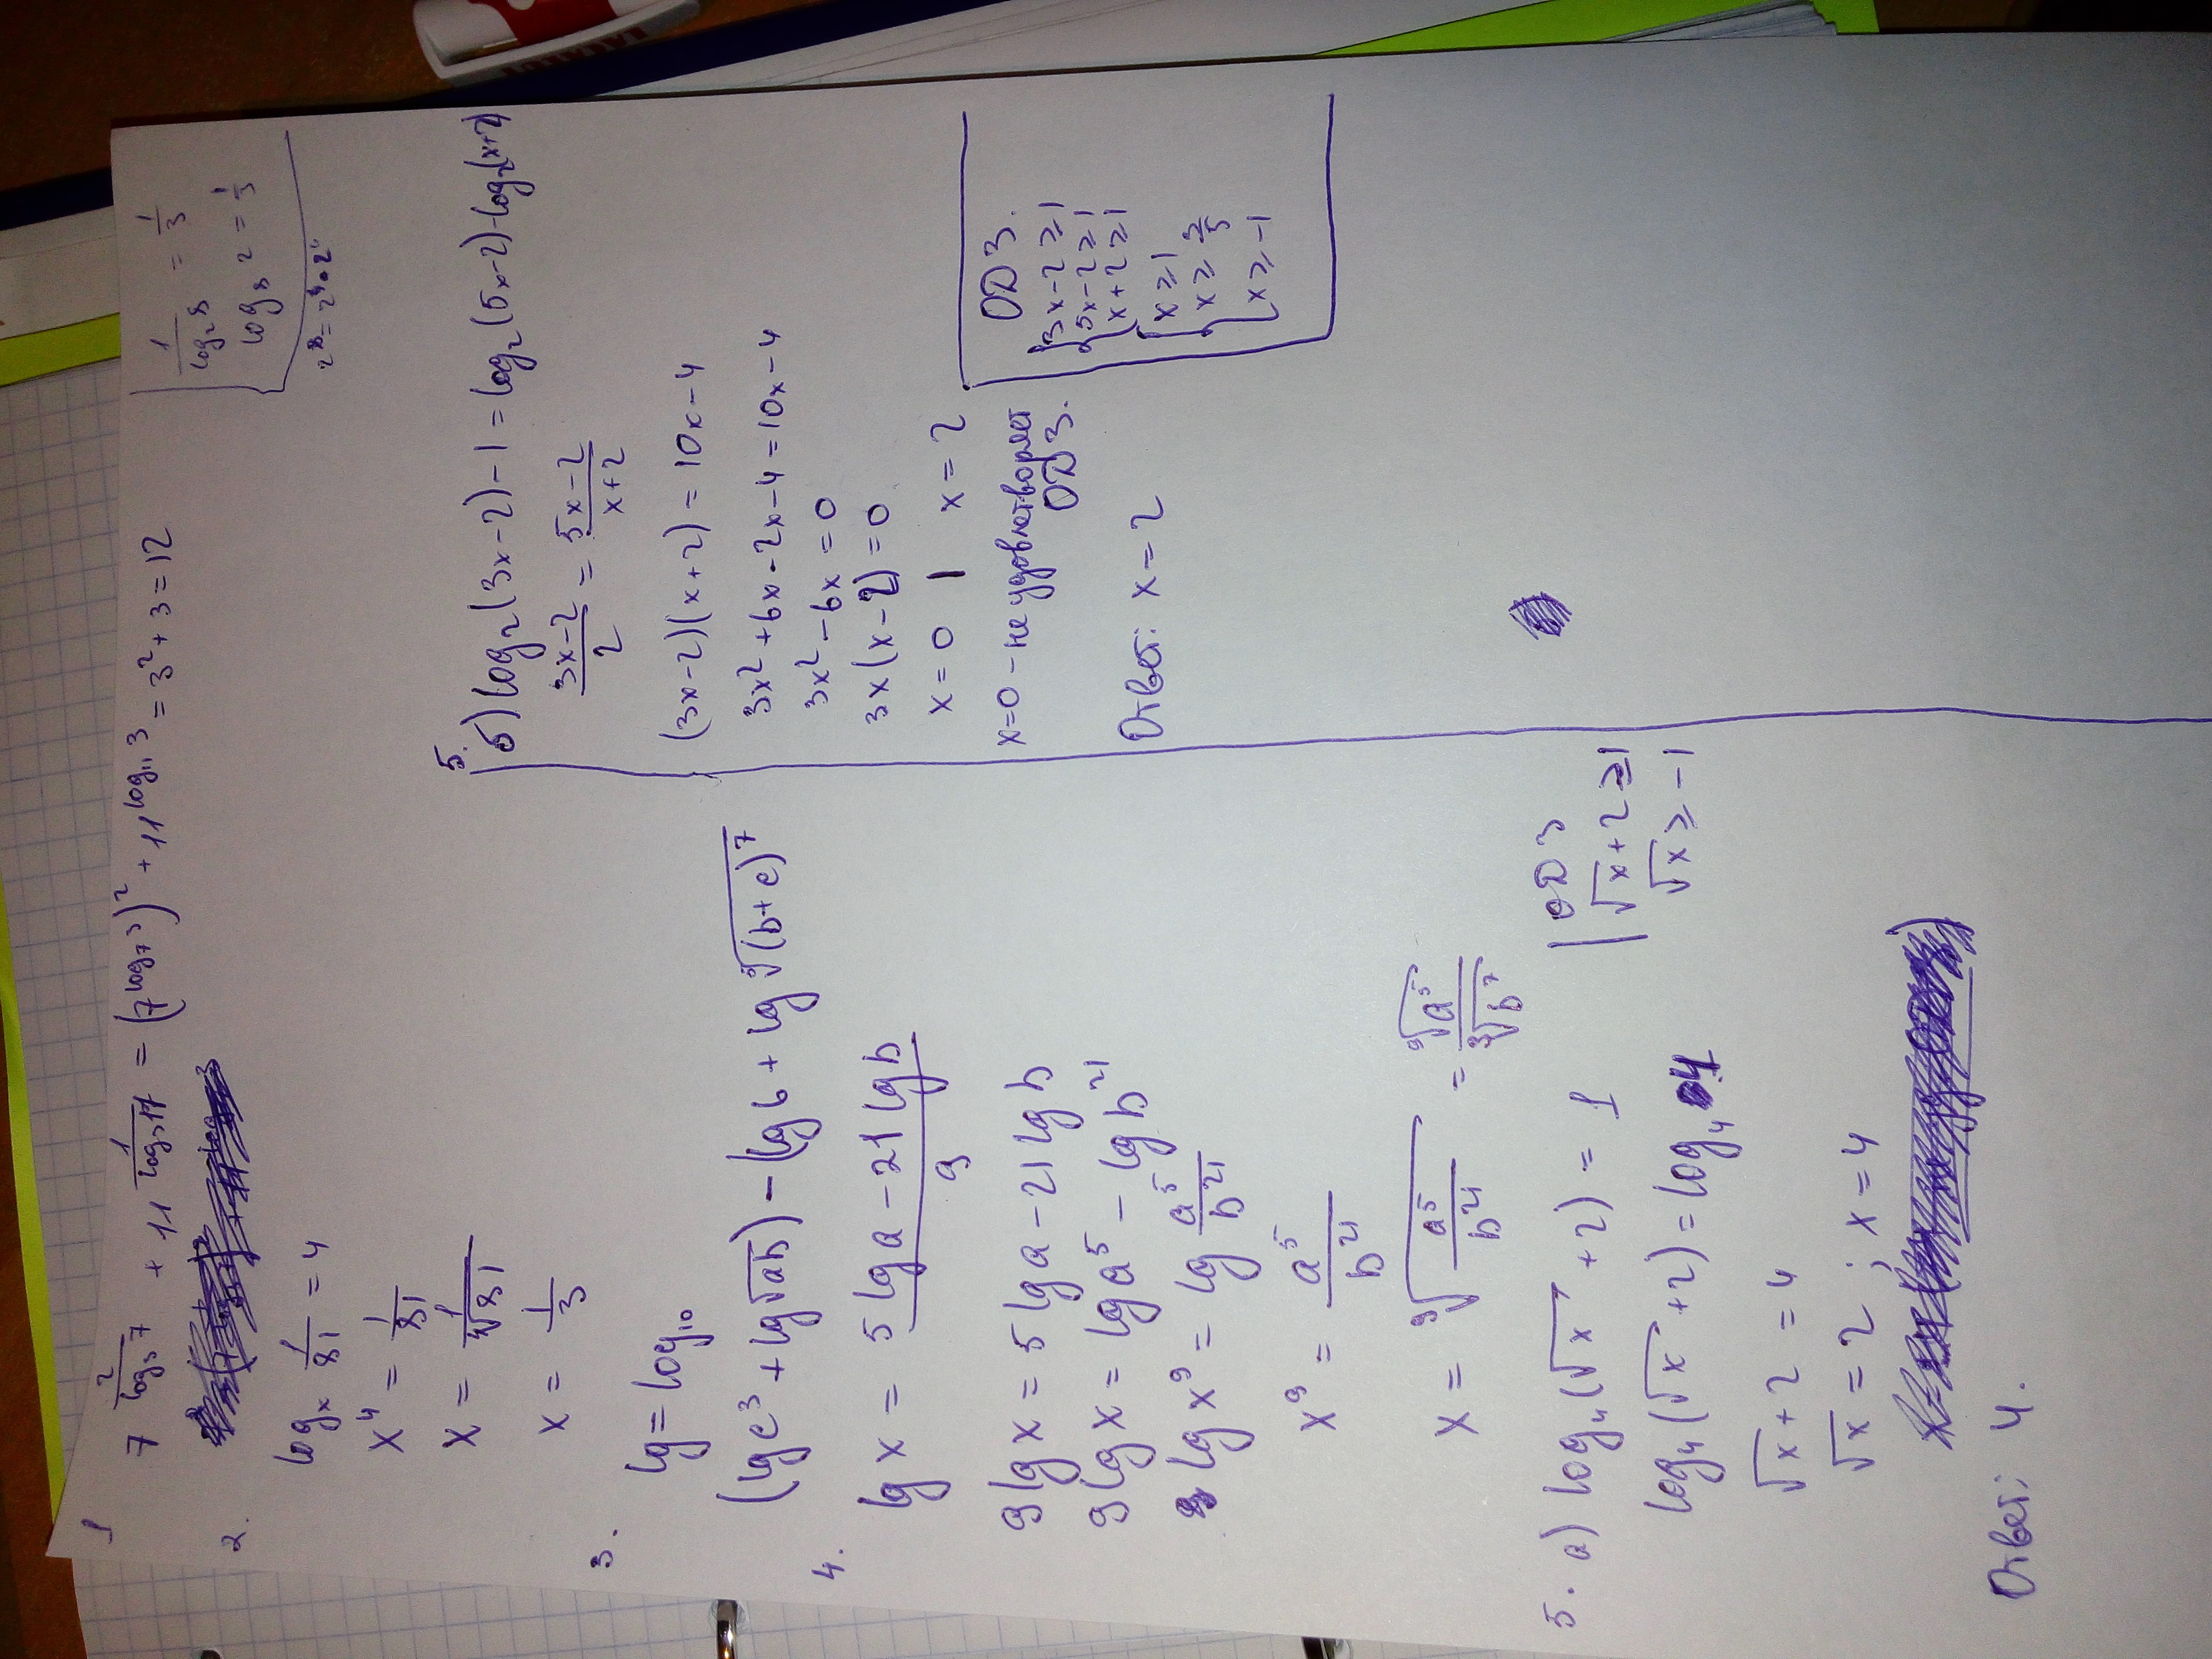 1 7^(2/log₃7) + 11^(1/log₃11) = (7^(log₇3))² + 11^(log₁₁3) = 3² + 3 = 12
1/log₂8 = 1/3
log₈2 = 1/3
2.
logₓ 1/81 = 4
x⁴ = 1/81
x = 1/⁴√81
x = 1/3
3.
lg = log₁₀
(lg c³ + lg√ab) − (lg 6 + lg ³√(b+c)⁷
4.
lg x = (5 lg a − 21 lg b)/9
9 lg x = 5 lg a − 21 lg b
9 lg x = lg a⁵ − lg b²¹
lg x⁹ = lg a⁵/b²¹
x⁹ = a⁵/b²¹
x = ⁹√(a⁵/b²¹) = ⁹√a⁵/³√b⁷
5. а) log₄(√x + 2) = 1
log₄(√x + 2) = log₄ 4
√x + 2 = 4
√x = 2 ; x = 4
Ответ: 4.
ОДЗ
√x + 2 ≥ 1
√x ≥ −1
5.
б) log₂(3x−2) − 1 = log₂(5x−2) − log₂(x+2)
(3x−2)/2 = (5x−2)/(x+2)
(3x−2)(x+2) = 10x−4
3x² + 6x − 2x − 4 = 10x − 4
3x² − 6x = 0
3x(x−2) = 0
x = 0 | x = 2
x=0 - не удовлетворяет
ОДЗ.
Ответ: x = 2
ОДЗ.
3x−2 ≥ 1
5x−2 ≥ 1
x+2 ≥ 1
x ≥ 1
x ≥ 3/5
x ≥ −1